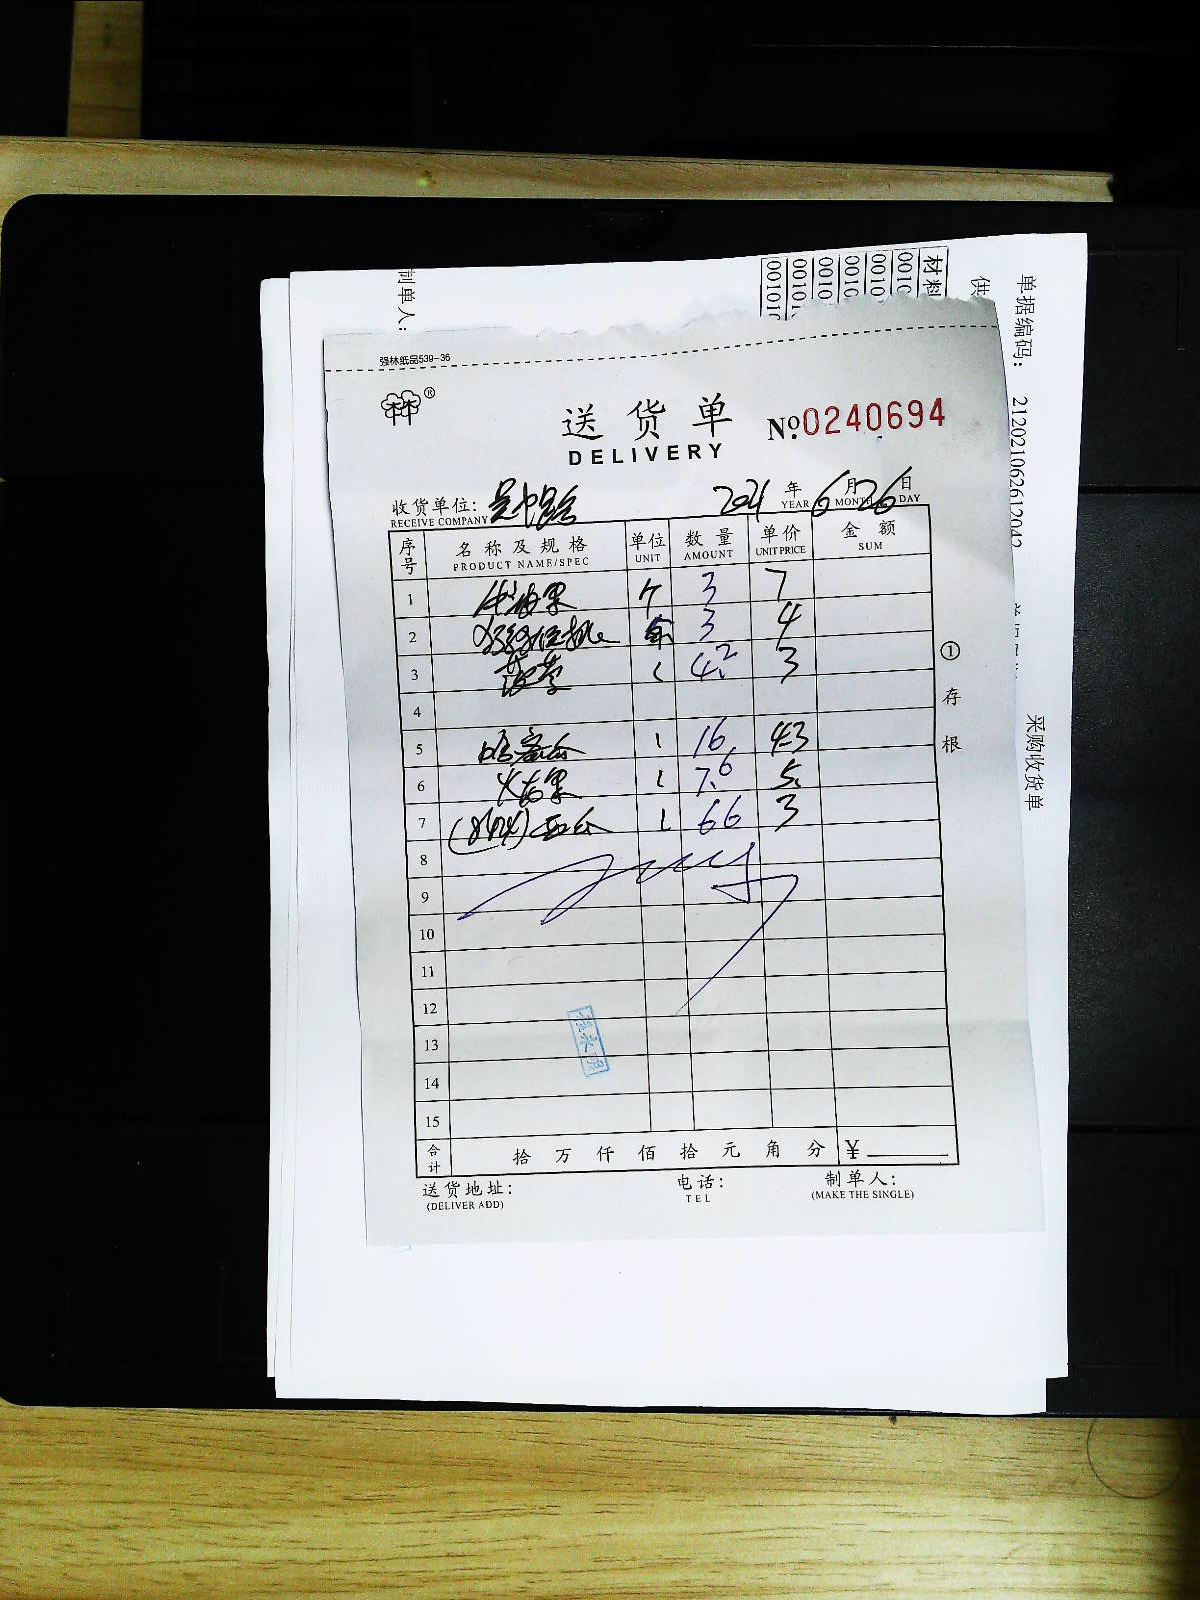 制单人:
材料
0010
0010
0010
0010
00101
001010
供
单据编码: 2120210626612042
采购收货单
强林纸品539-36
林林®
送货单 №0240694
DELIVERY
收货单位: 2021 年 6 月 26 日
RECEIVE COMPANY YEAR MONTH DAY
序号 名称及规格 单位 数量 单价 金额
PRODUCT NAME/SPEC UNIT AMOUNT UNIT PRICE SUM
1 牛油果 个 3 7
2 3 4
3 菠萝 4.2 3
4
5 哈密瓜 16 4.3
6 火龙果 7.6 5
7 (8424)西瓜 66 3
8
9
10
11
12
13
14
15
合计 拾 万 仟 佰 拾 元 角 分 ¥
送货地址: 电话: 制单人:
(DELIVER ADD) TEL (MAKE THE SINGLE)
① 存根